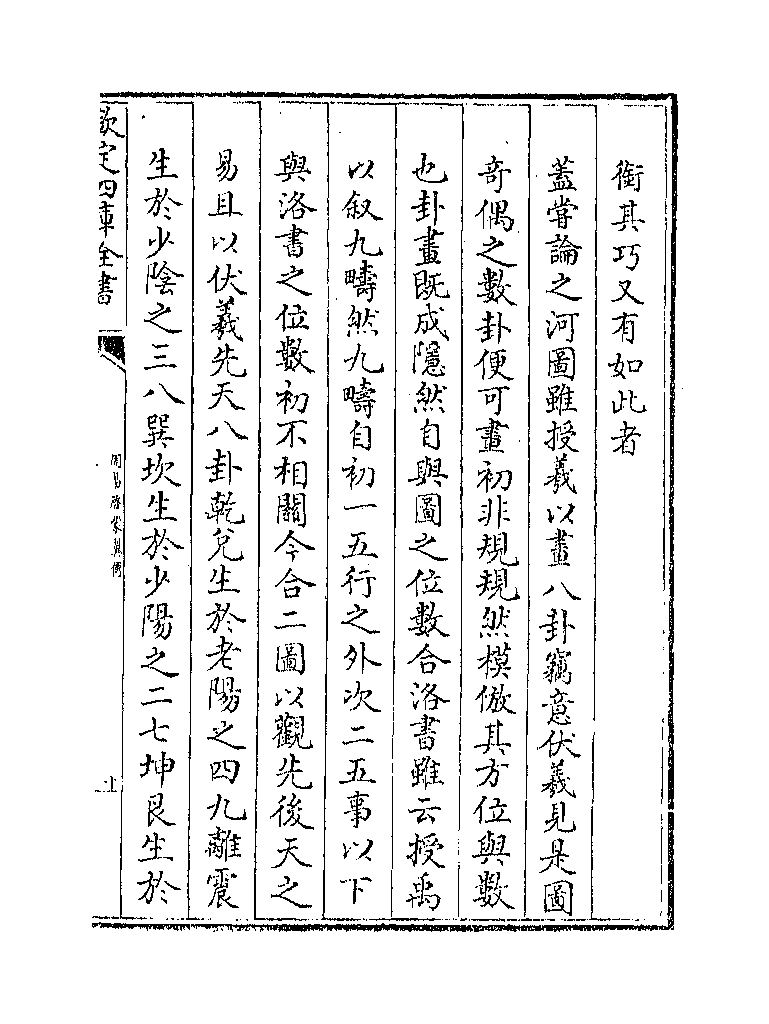 衒其巧又有如此者
蓋嘗論之河圖雖授羲以畫八卦竊意伏羲見是圖
奇偶之數卦便可畫初非規規然模倣其方位與數
也卦畫既成隱然自與圖之位數合洛書雖云授禹
以叙九疇然九疇自初一五行之外次二五事以下
與洛書之位數初不相關今合二圖以觀先後天之
易且以伏羲先天八卦乾兌生於老陽之四九離震
生於少陰之三八巽坎生於少陽之二七坤艮生於
欽定四庫全書
周易啓蒙翼傳